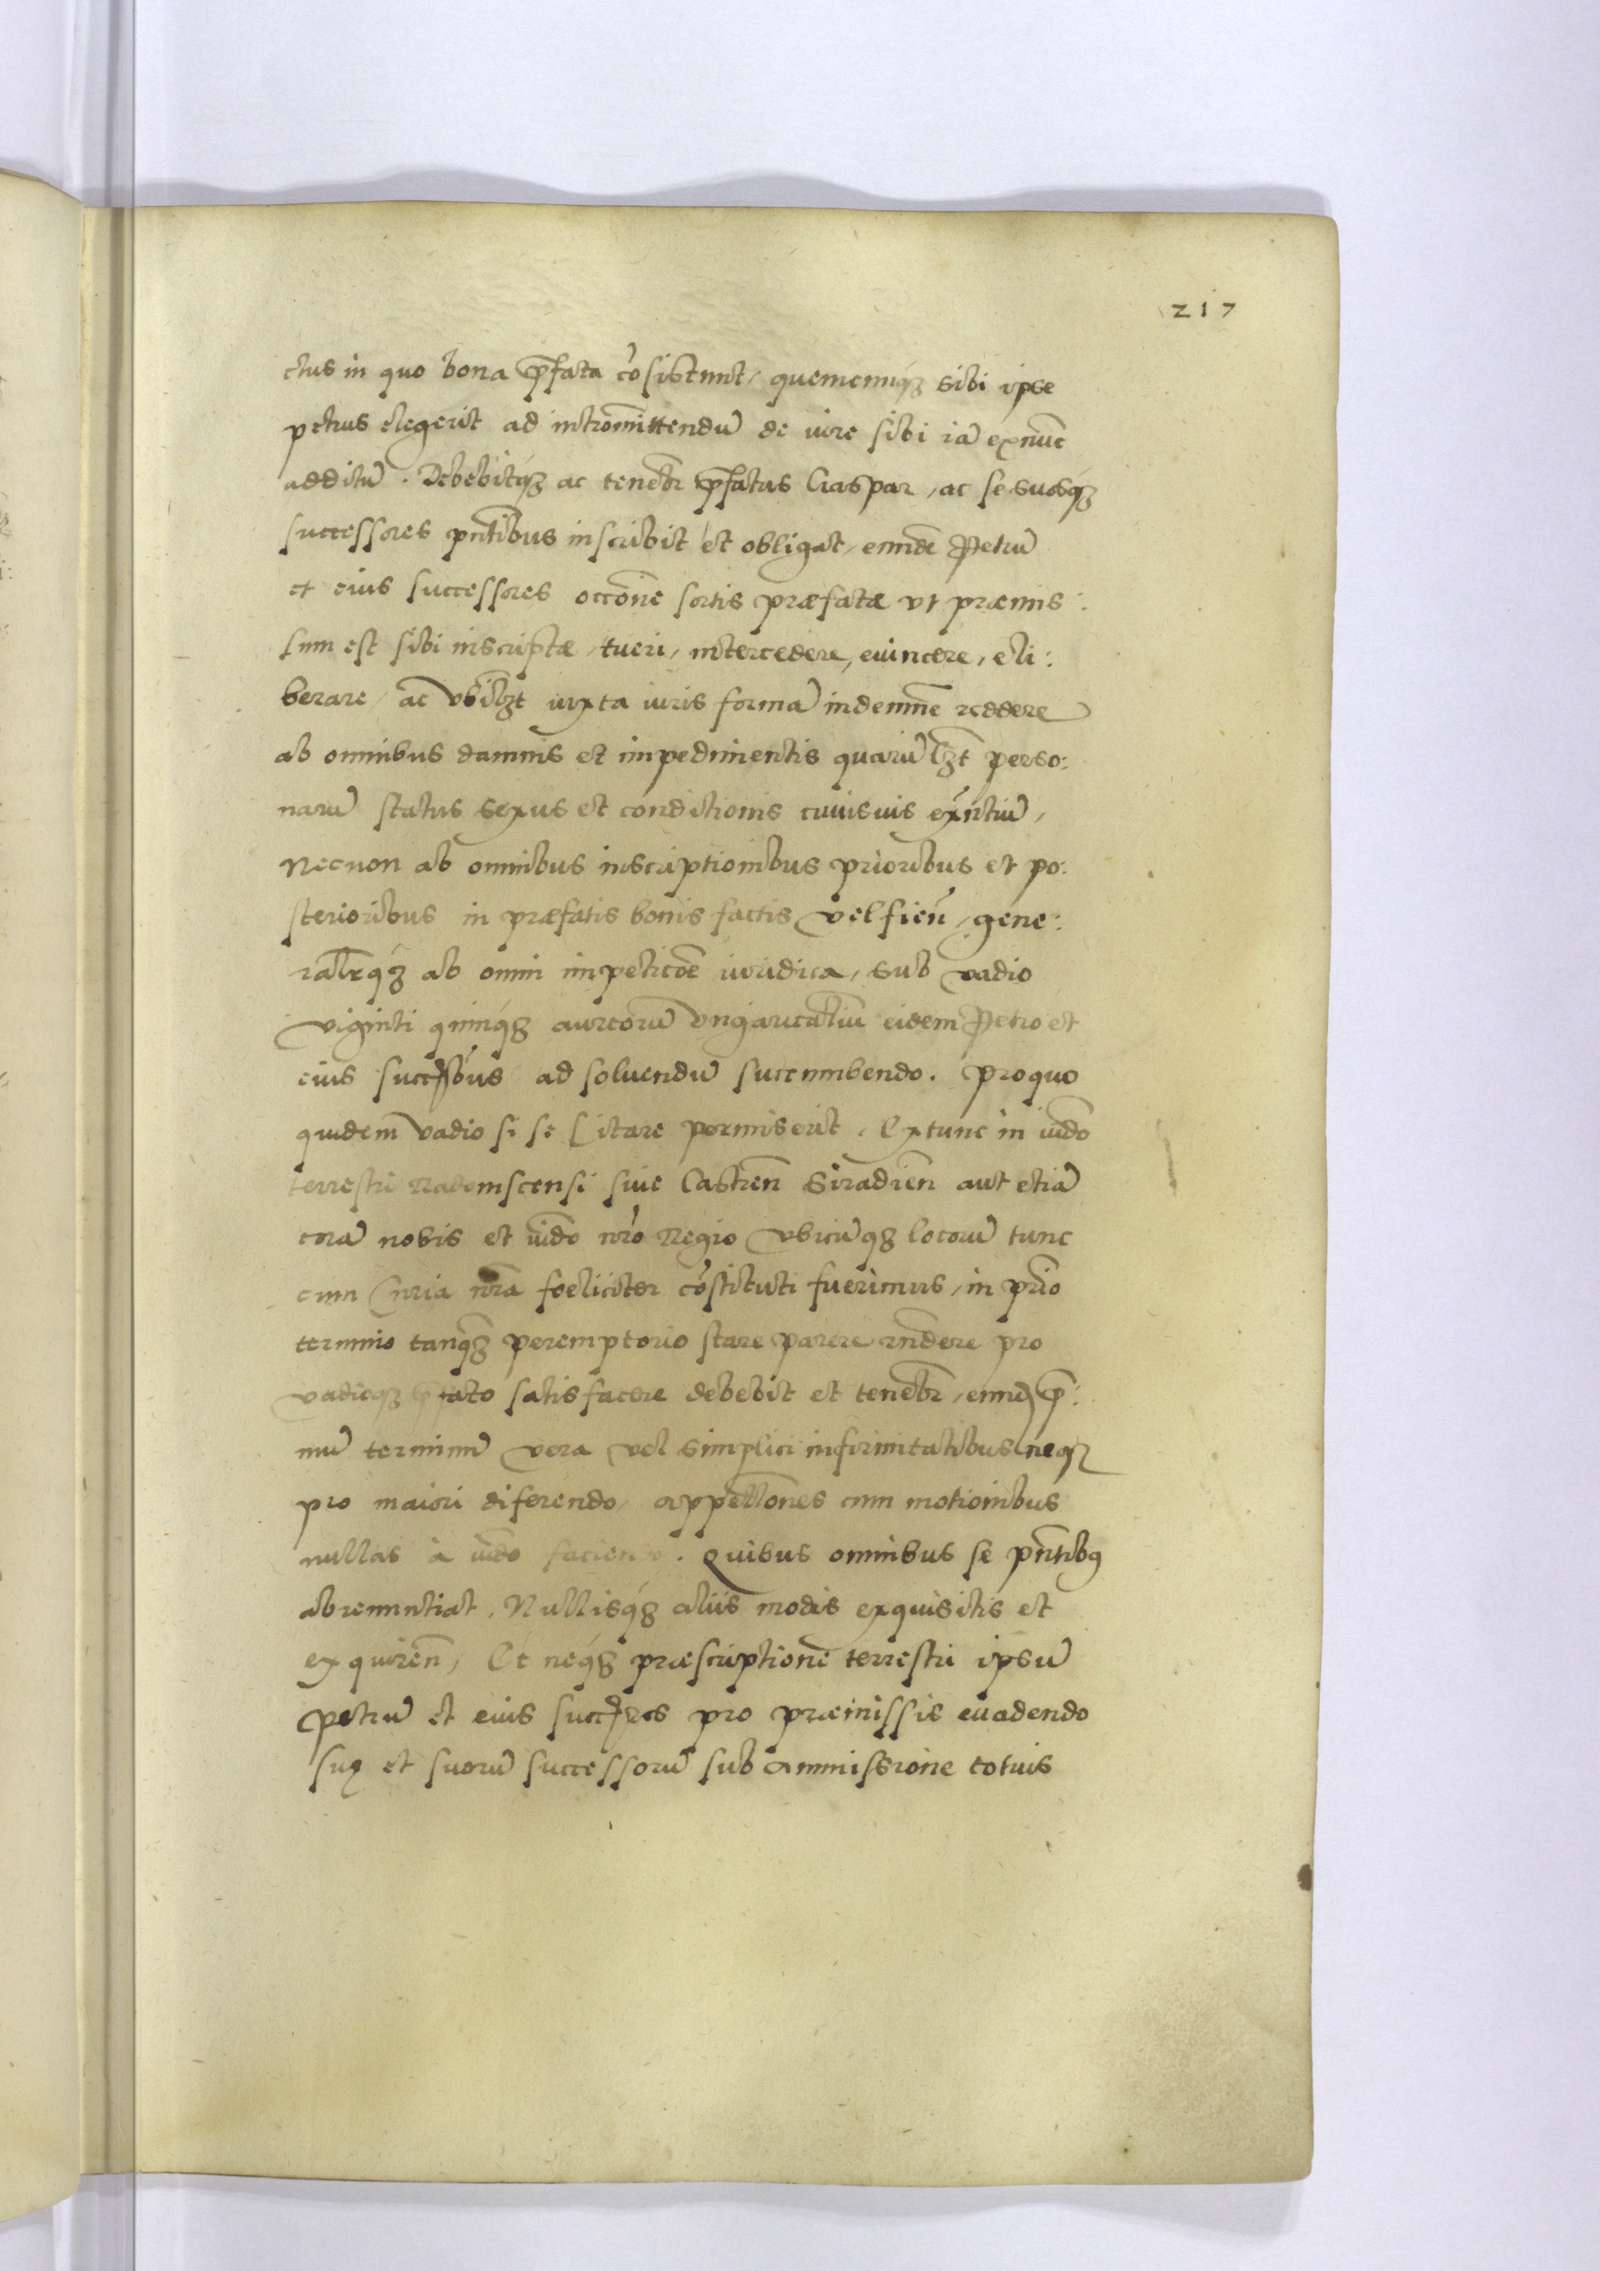 217
ctus in quo bona p̄fata cōsistunt, quemcunq3 sibi ipse
petrus elegerit ad intromittendū de iure sibi iā exnūc
additū. Debebitq3 ac tenebr̄ p̄fatus Caspar, ac se suosq3
successores pn̄tibus inscribit et obligat, eundē Petrū
et eius successores occōne sortis præfatæ vt præmis:
sum est sibi inscriptæ, tueri, intercedere, euincere, eli:
berare, ac vbil3t iuxta iuris formā indemnē reddere
ab omnibus damnis et impedimentis quarūl3t perso:
narū status sexus et conditionis cuiusuis exn̄tiū,
Necnon ab omnibus inscriptionibus prioribus et po:
sterioribus in præfatis bonis factis vel fien̄, gene:
ralr̄q3 ab omni impeticōe iuridica, sub vadio
viginti quinq3 aureorū vngaricaliū eidem Petro et
eius succ̄sōribus ad soluendū succumbendo. Pro quo
quidem vadio si se citare permiserit. Extunc in iudō
terrestri Radomscensi siue Castren̄ Siradien̄ aut etiā
corā nobis et iudō nr̄o Regio vbicūq3 locorū tunc
cum Curia nr̄a foeliciter cōstituti fuerimus, in prīo
termino tanq3 peremptorio stare parere rn̄dere pro
vadioq3 p̄fato satisfacere debebit et tenebr̄, eund p̄:
mū terminū vera vel simplici infirmitatibus neq3
pro maiori diferendo, appellōnes cum motionibus
nullas à iudō faciendo. Quibus omnibus se pn̄tibus
abrenuntiat. Nullisq3 aliis modis exquisitis et
exquiren̄, Et neq3 præscriptione terrestri ipsū
petrū et eius succ̄res pro præmissis euadendo
suę et suorū successorū sub ammissione totius